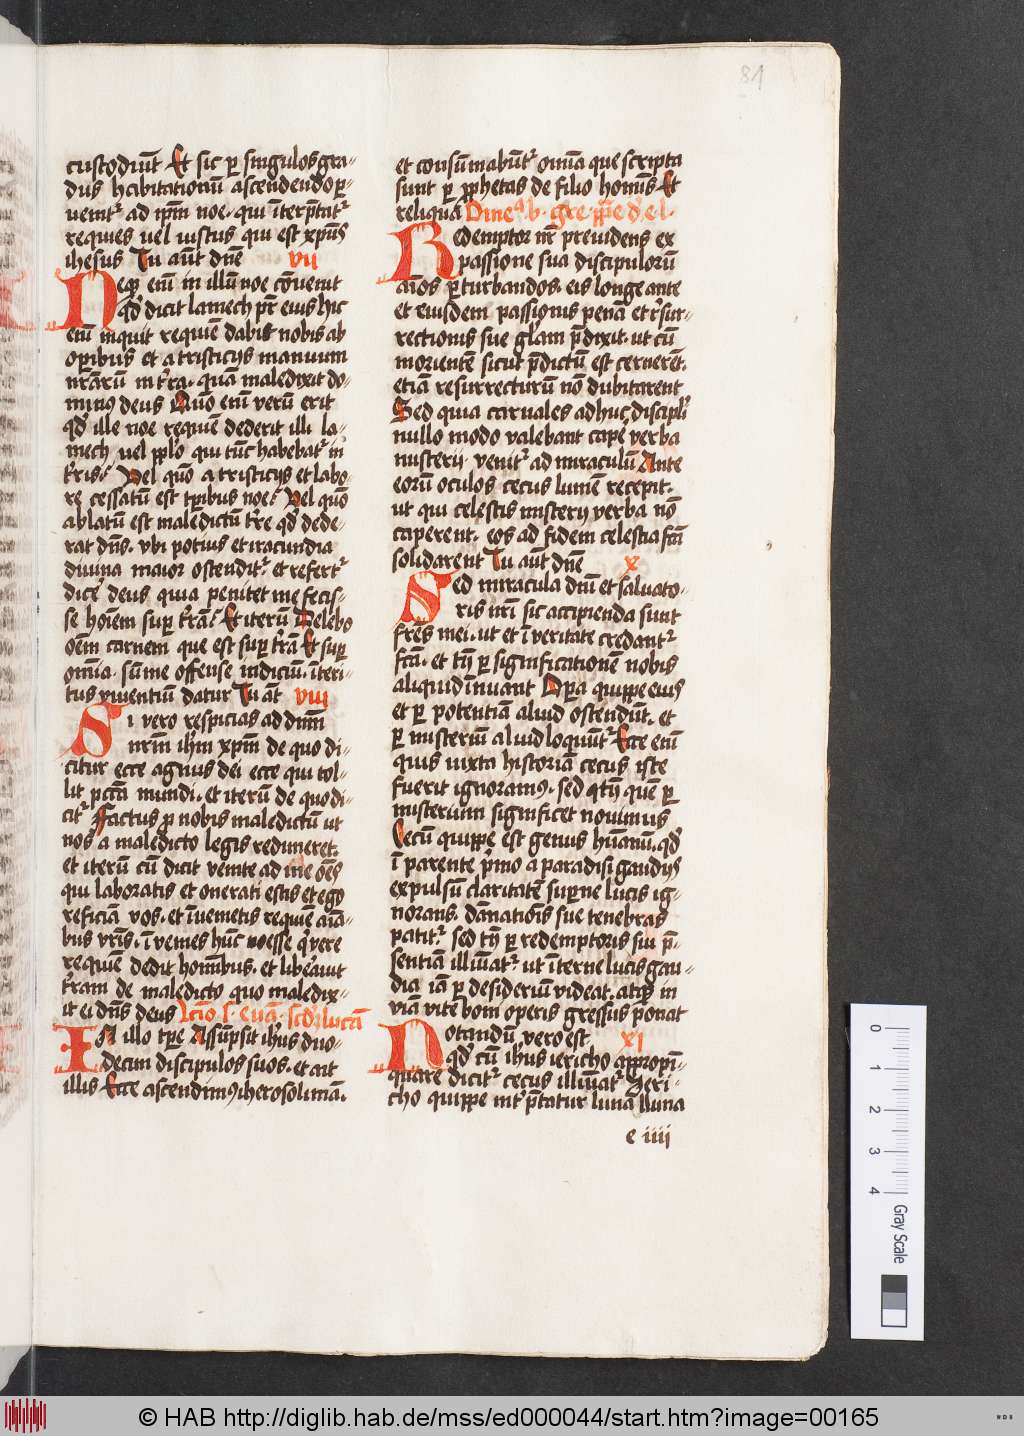 81
custodiūt Et sic ꝑ singulos gra⸗
dus habitationū ascendendo ꝑ⸗
uenitᷣ ad ip̄m noe· qui īterp̄tatᷣ
requies uel iustus qui est xp̄us
ihesus Tu aūt dn̄e vii
Neqꝫ enī in illū noe cōuenit
qd̓ dicit lamech pr̄ eius hic
enī inquit requiē dabit nobis ab
oꝑibus et a tristicijs manuum
nr̄arū in t̓ra· quā maledixit do⸗
minus deus Quō enī verū erit
qd̓ ille noe requiē dederit illi la⸗
mech uel ppl̓o qui tūc habebatᷣ in
t̓ris? Vel quō a tristicijs et labo⸗
re cessatū est tꝑibus noe? Vel quō
ablatū est maledictū t̓re qd̓ dede⸗
rat dn̄s· vbi potius et iracundia
diuina maior ostenditᷣ· et refertᷣ
dice̓ deus quia penitet me fecis⸗
se hoīem suꝑ t̓rā? Et iterū Delebo
oēm carnem que est suꝑ t̓rā Et suꝑ
omīa· sūme offense indiciū· īteri⸗
tus viuentiū datur Tu aūt viii
Si vero respicias ad dn̄m
nr̄m ih̄m xp̄m de quo di⸗
citur ecce agnus dei ecce qui tol⸗
lit pcc̄a mundi· et iterū de quo di⸗
citᷣ Factus ꝓ nobis maledictū ut
nos a maledicto legis redimeret·
et iterū cū dicit venite ad me oēs
qui laboratis et onerati estis et ego
reficiā vos· et īuenietis requiē aīa⸗
bus vr̄is· īuenies hūc esse q̓ vere
requiē dedit hominibus· et libe̓auit
t̓ram de maledicto quo maledix⸗
it ei dn̄s deus Lcīo s· euā· scd̓ lucā
IN illo tꝑe Assūpsit ih̄us duo⸗
decim discipulos suos· et ait
illis Ecce ascendimꝰ iherosolimā·
et consūmabūtᷣ om̄ia que scripta
sunt ꝑ ꝓphetas de filio hominis Et
reliqua Om̄e b· gre· ppe d̓ e· l·
Redemptor nr̄ preuidens ex
passione sua discipulorū
aīos ꝑturbandos· eis longe ante
et eiusdem passionis penā et r̓sur⸗
rectionis sue glām p̄dixit· ut cū
morientē sicut p̄dictū est cernerēt·
etiā resurrecturū nō dubitarent
Sed quia carnales adhuc discipl̓i
nullo modo valebant cape̓ verba
misterij· venitᷣ ad miraculū Ante
eorū oculos cecus lumē recepit·
ut qui celestis misterij verba nō
caperent· eos ad fidem celestia fcā
solidarent Tu aūt dn̄e x
Sed miracula dn̄i et saluato⸗
ris nr̄i sic accipienda sunt
fr̄es mei· ut et ī veritate credantᷣ
fcā· et tn̄ ꝑ significationē nobis
aliquid īnuant Oꝑa quippe eius
et ꝑ potentiā aliud ostendūt· et
ꝑ misteriū aliud loquūtᷣ Ecce enī
quis iuxta historiā cecus iste
fuerit ignoramꝰ· sed quē ꝑ
misterium significet nouimus
Cecū quippe est genus hūanū· qd̓
ī parente p̓mo a paradisi gaudijs
expulsū claritatē suꝑne lucis ig⸗
norans· dānatiōis sue tenebras
patitᷣ· sed tn̄ ꝑ redemptoris sui p̄⸗
sentiā illūatᷣ· ut īterne lucis gau⸗
dia iā ꝑ desideriū videat· atqꝫ in
viā vite boni operis gressus ponat
Notandū vero est xi
qd̓ cū ih̄us iericho appropī⸗
quare dicitᷣ cecus illūatᷣ Jeri⸗
cho quippe int̓p̄tatur luna Luna
e iiii
0
1
2
3
4
Gray Scale
© HAB http://diglib.hab.de/mss/ed000044/start.htm?image=00165